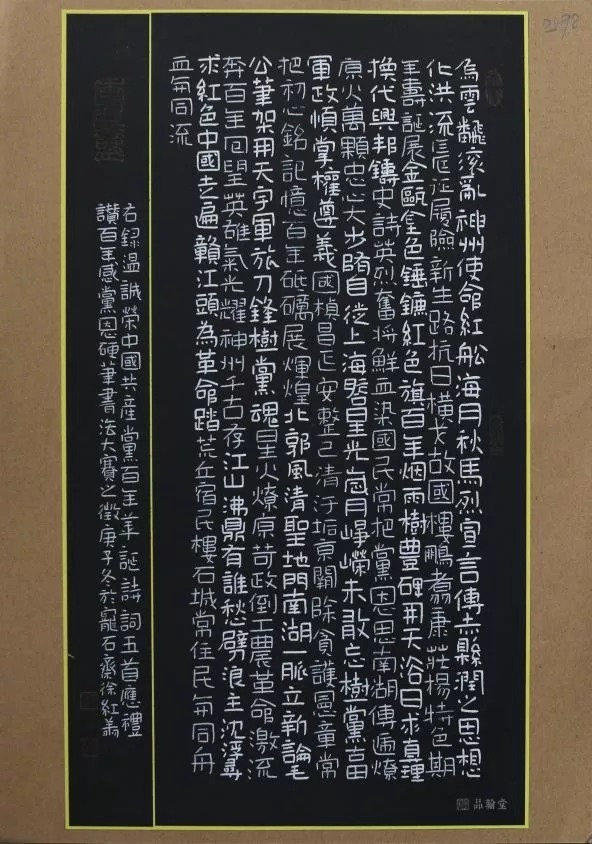 烏雲翻滾亂神州使命紅船海日秋馬烈宣言傳赤縣潤之思想
化洪流長征履險新生路抗日橫戈故國樓鵬煮康莊楊特色期
壽誕展金甌金色錘鐮紅色旗百年烟雨樹豐碑開天浴日求真理
換代興邦鑄史詩英烈奮將鮮血染國民常把黨恩思南湖傳遍燎
原火萬顆忠心大步隨自從上海啓星光歲月崢嶸未敢忘樹黨當
軍政慎掌權遵義國楨昌正安整己清汙垢京關除貪護憲章常
把初心銘記憶百年砥礪展輝煌北郭風清聖地門南湖一脈立新論毛
公筆架開天字軍旅刀鋒樹黨魂星火燎原苛政倒工農革命激流
奔百年回望英雄氣光耀神州千古存江山沸鼎有誰愁劈浪主沈浮尋
求紅色中國走遍贛江頭為革命踏荒丘宿民樓石城常住民每同舟
血每同流
右錄温誠榮中國共產黨百年華誕詩詞五首應禮
讚百年感黨恩硬筆書法大賽之徵庚子冬於寵石齋徐紅
品翰堂